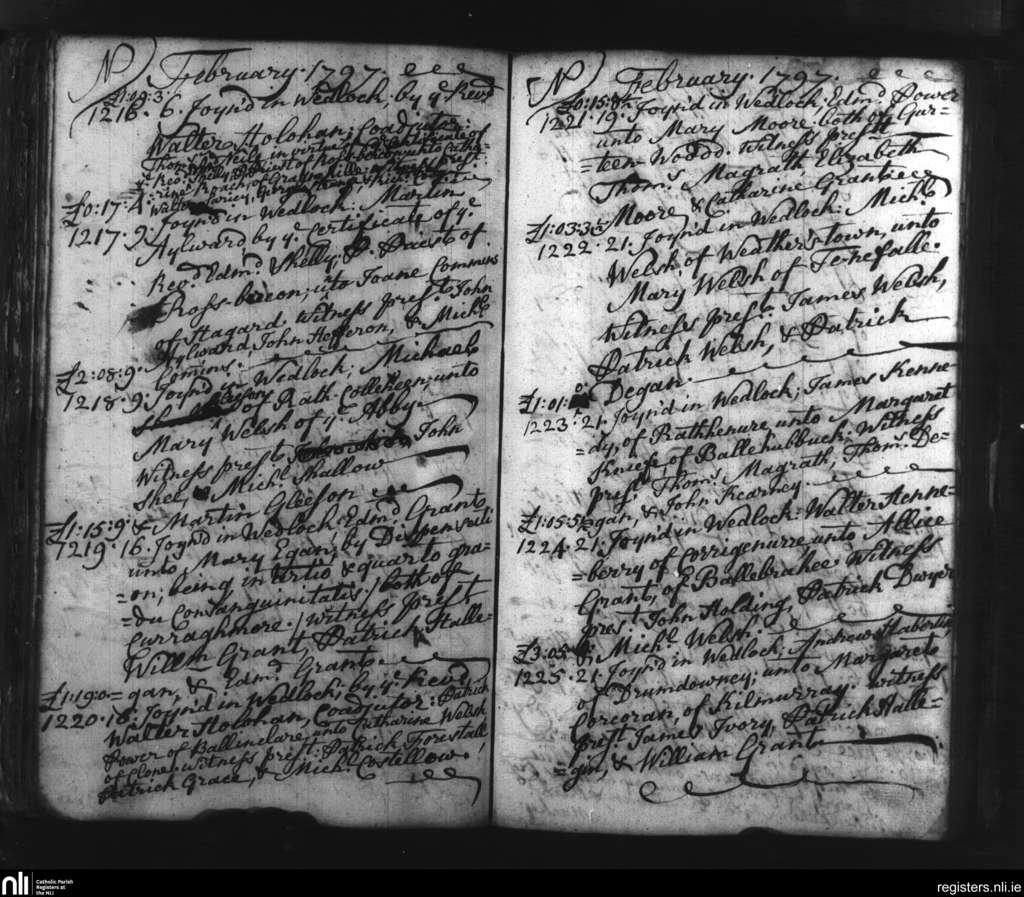 No. February. 1797.
£1:09:3.
1216. 6. Joyn'd in Wedlock, by ye. Revd
Walter Holohan; Coadjutor:
£0:17:4.
1217. 9. Joyn'd in Wedlock. Martin
Aylward by ye. Certificate of ye.
Revd. Edmd. Shelly, P. Priest of
Ross-becon; unto Joane Commins
of Hagard. witness prest. John
Aylward, John Hefferon, & Michl.
£2:08:9. Comins.
1218. 9. Joyn'd in Wedlock; Michael
of Rath-Colleheen; unto
Mary Welsh of ye. Abby.
Witness prest. John
Shea, Michl. Shallow
£1:15:9. & Martin Gleeson
1219. 16. Joyn'd in Wedlock, Edmd. Grant
unto Mary Egan; by Dispensati
=on; being in tertio & quarto gra=
=du Consanguinitatis: / both of
Curraghmore. / witness prest
Willm Grant, Patrick Halle=
£1:19:0. =gan, & Edmd. Grant.
1220. 16. Joyn'd in Wedlock; by ye. Revd.
Walter Holohan, Coadjutor: Patrick
Power of Ballinclare, unto Catharine Welsh
of Clone: witness prest. Patrick Forestall,
Patrick Grace, & Michl. Costellow.
No. February. 1797.
£0:15:8.
1221. 19. Joyn'd in Wedlock; Edmd. Power
unto Mary Moore: both of Gur=
=teen- Woddd. Witness prest
Thoms. Magrath, Elizabeth
£1:03:3. Moore & Catharine Grant
1222. 21. Joyn'd in Wedlock: Michl.
Welsh, of Weatherstown, unto
Mary Welsh of Tenefalle.
Witness prest. James Welsh,
Patrick Welsh, & Patrick
£1:01: Degan.
1223. 21. Joyn'd in Wedlock; James Kenne=
=dy, of Rathhenure unto Margaret
Kneefe, of Ballehulbuck: Witness
prest. Thoms. Magrath, Thoms. De=
£1:05:5. =gan, & John Kearney
1224. 21. Joyn'd in Wedlock: Walter Henne=
=berry of Corrigenurre unto Allice
Grant, of Ballebrahee Witness
prest. John Holding, Patrick Dwyer
£3:05 & Michl. Welsh.
1225. 21. Joyn'd in Wedlock; Andrew Haberlin,
of Drumdowney; unto Margaret
Corcoran, of Kilmurray. witness
prest. James Ivory, Patrick Halle=
=gin, & William Grant
nli
Catholic Parish
Registers at
the NLI
registers.nli.ie